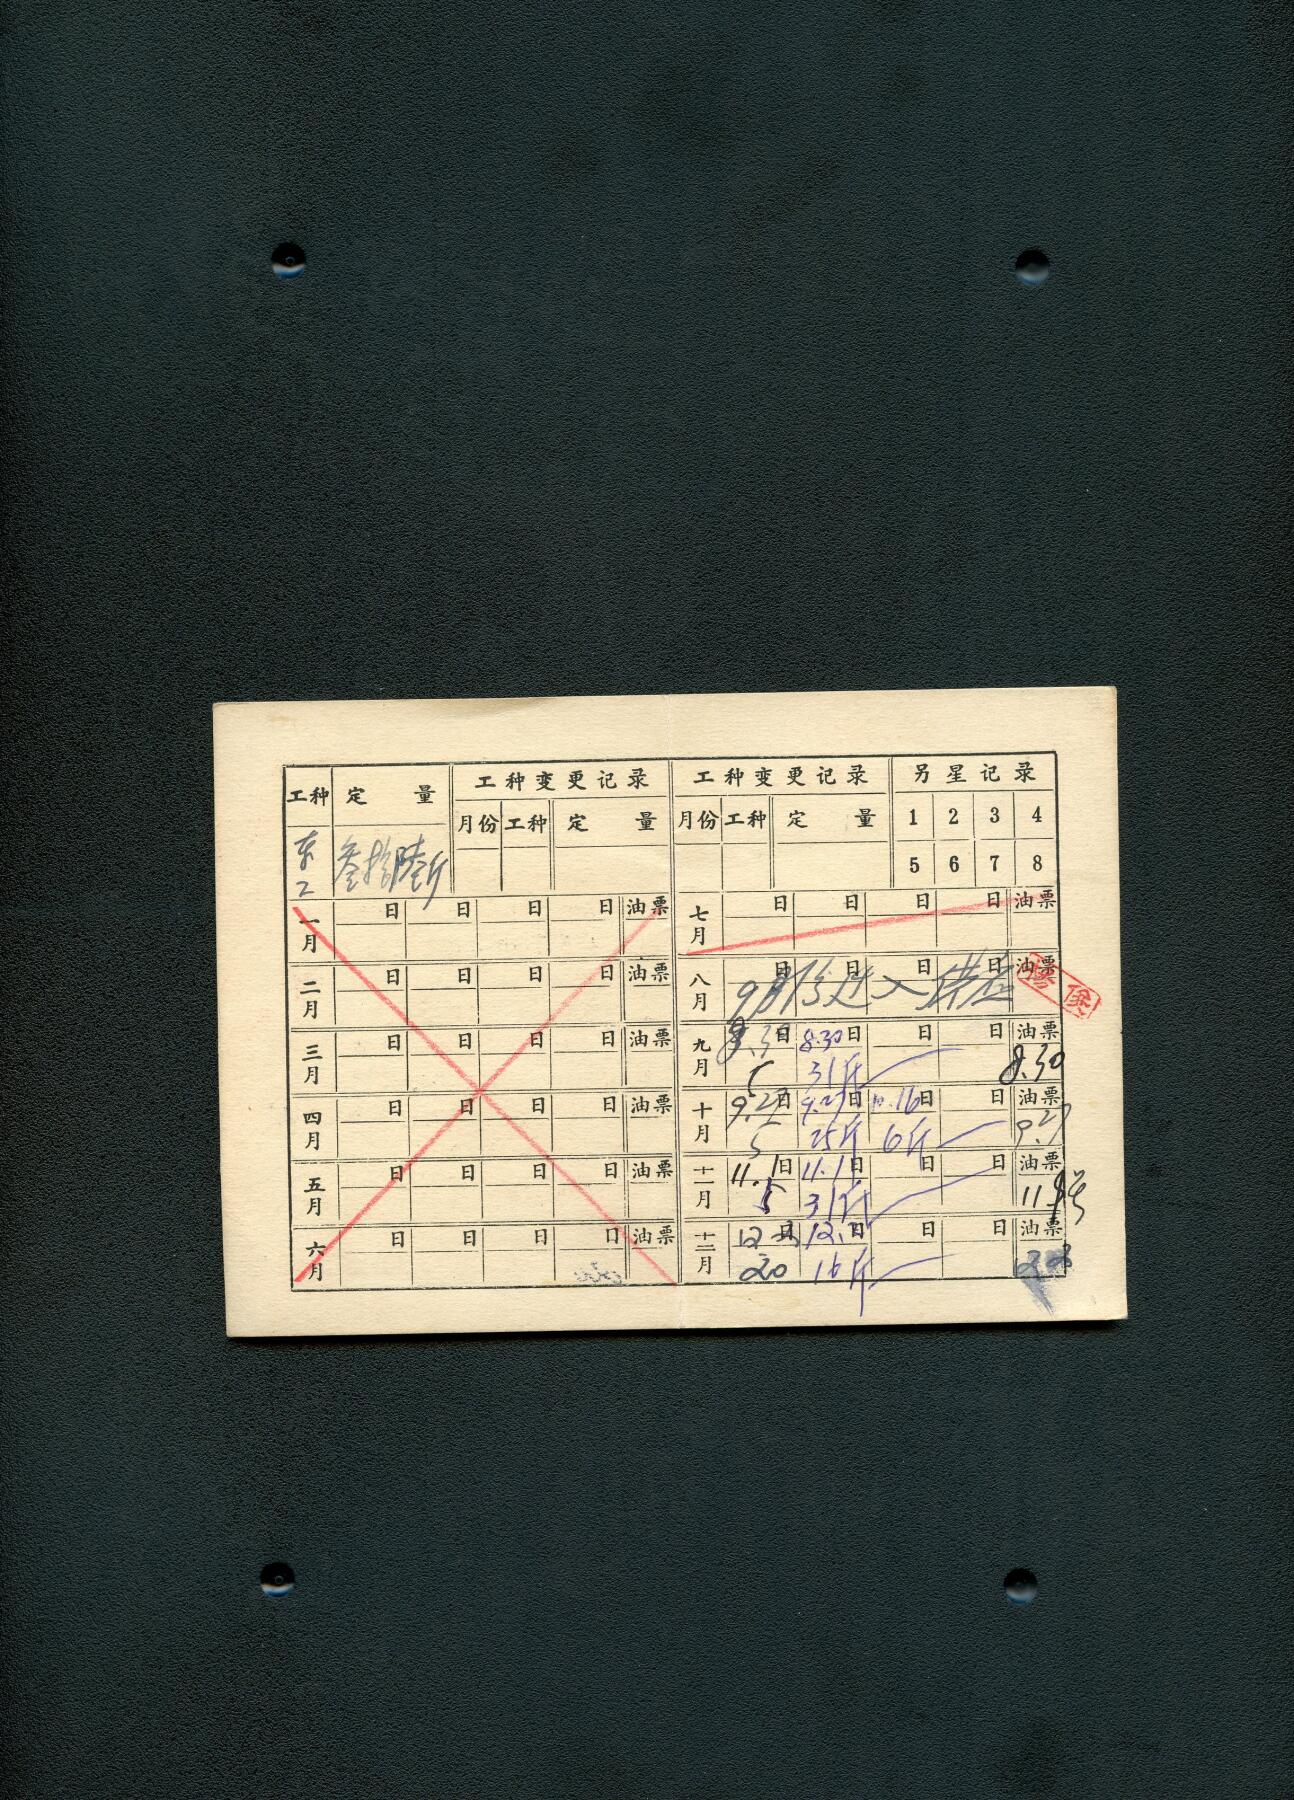 工种 定量 工种变更记录 工种变更记录 另星记录
月份 工种 定量 月份 工种 定量 1 2 3 4
叁拾陆斤 5 6 7 8
一月 日 日 日 日 油票 七月 日 日 日 日 油票
二月 日 日 日 日 油票 八月 日 日 日 日 油票
9月份迁入
三月 日 日 日 日 油票 九月 日 8.30日 日 日 油票
5 31斤 8.30
四月 日 日 日 日 油票 十月 9.27日 9.27日 10.16日 日 油票
5 25斤 6斤 9.27
五月 日 日 日 日 油票 十一月 11.1日 11.1日 日 日 油票
5 31斤
六月 日 日 日 日 油票 十二月 日 日 日 日 油票
20 16斤